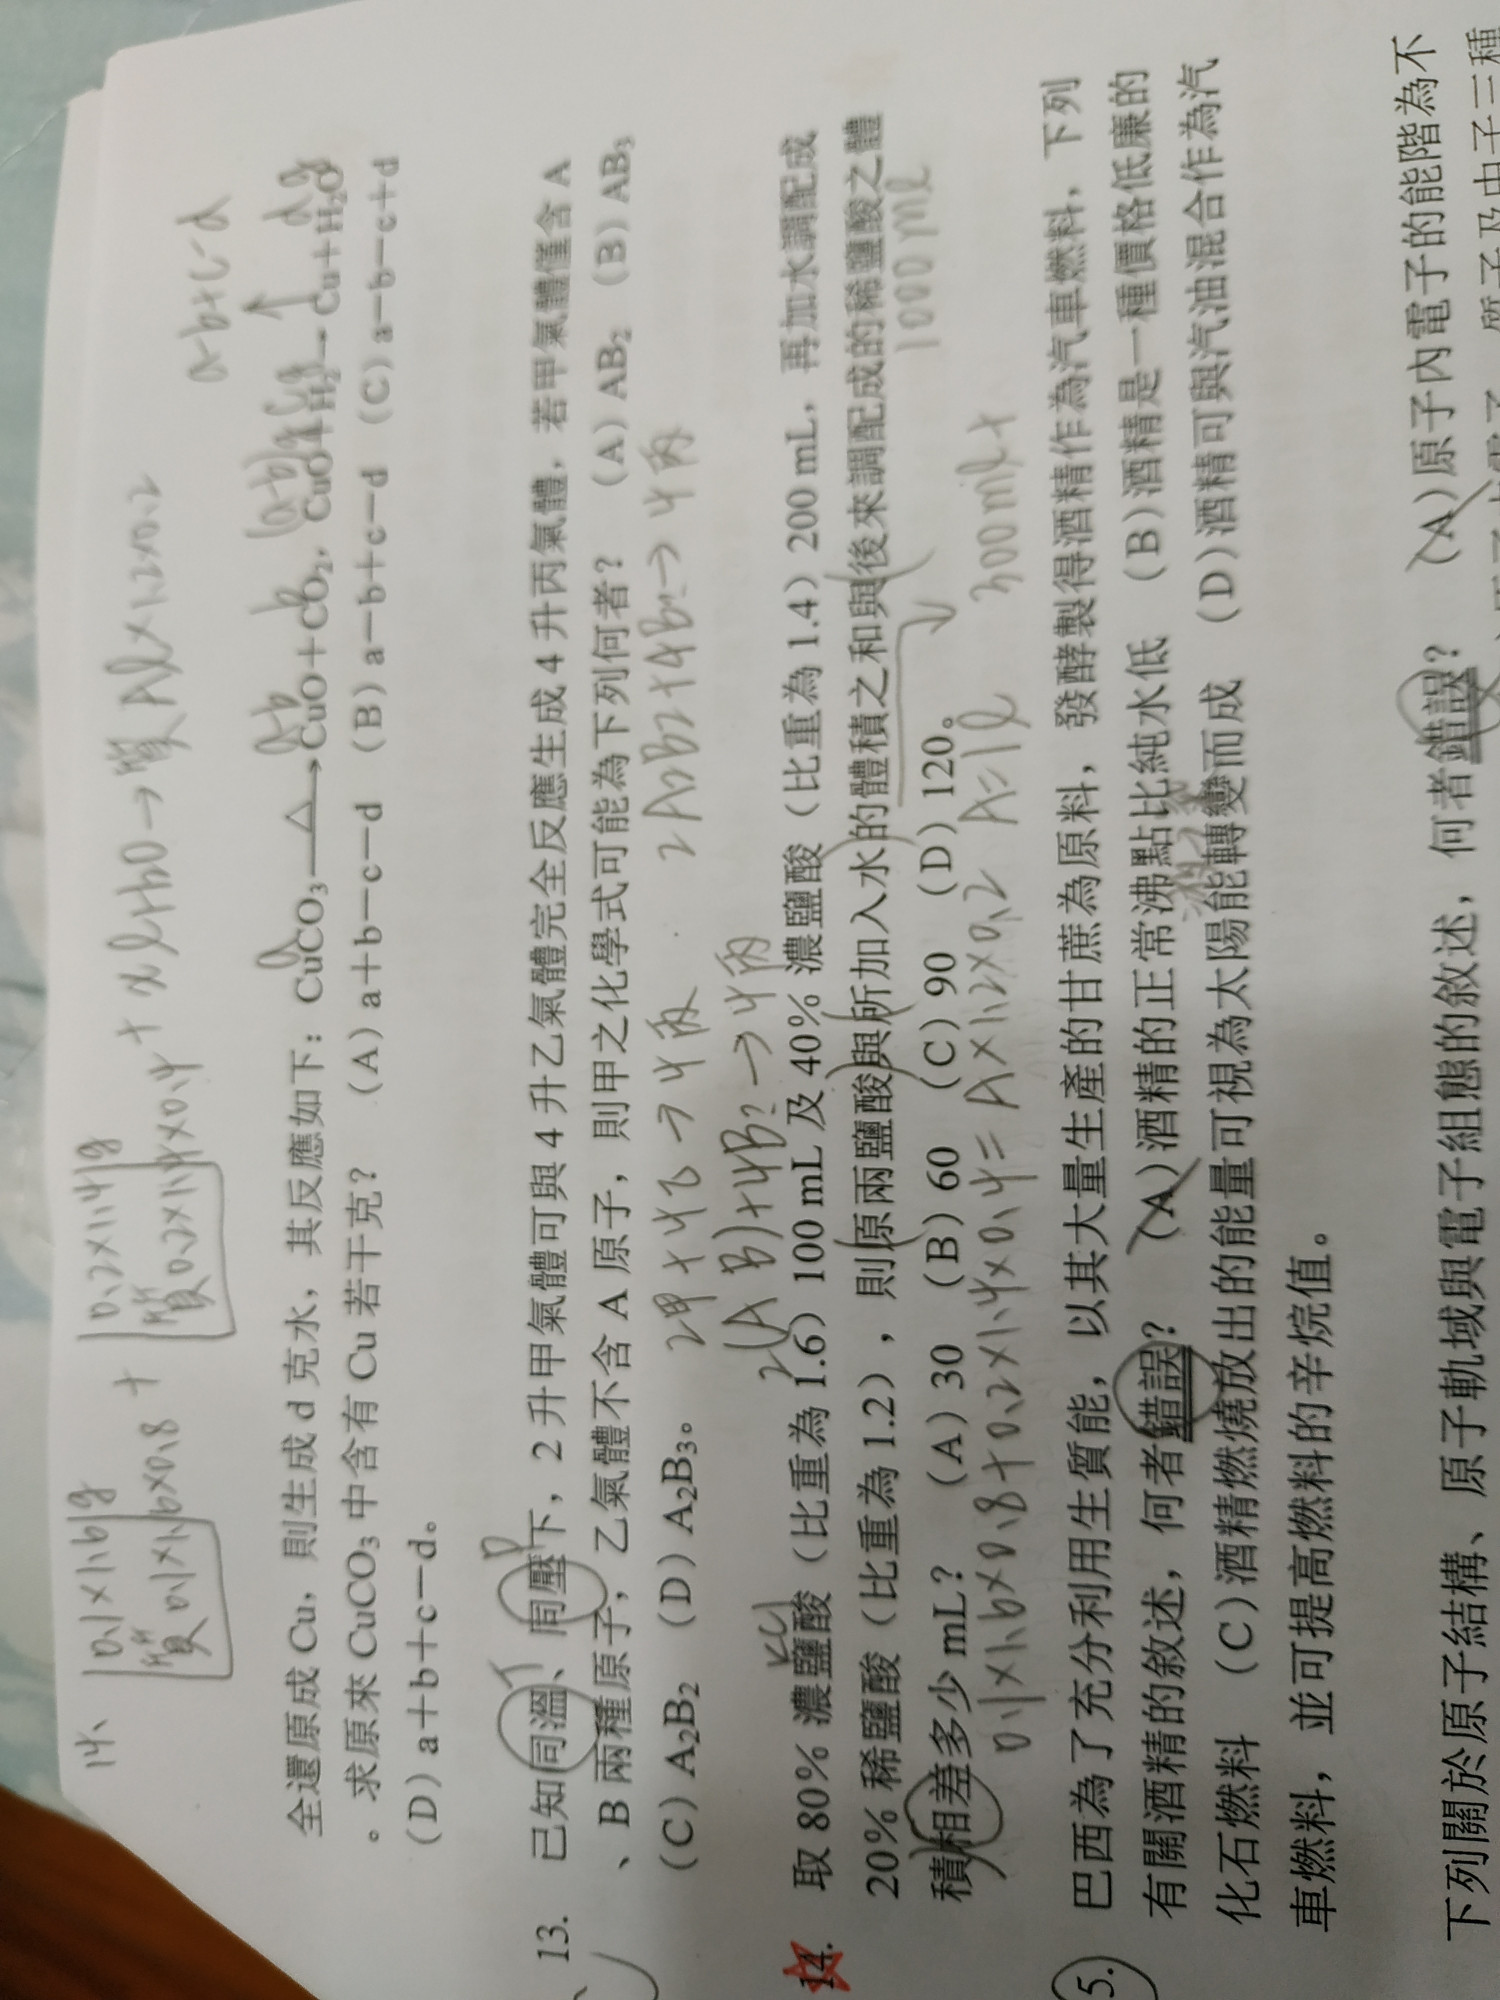 14.
0.1×1.6g
質0.1×1.6×0.8 +
0.2×1.4g
質0.2×1.4×0.4 + xlH₂O → 質Al×1.2×0.2
a-b+c-d
a a-b b (a-b)g cg dg
全還原成 Cu，則生成 d 克水，其反應如下：CuCO₃ —△→ CuO＋CO₂，CuO＋H₂→Cu＋H₂O
。求原來 CuCO₃ 中含有 Cu 若干克？ (A) a＋b－c－d (B) a－b＋c－d (C) a－b－c＋d
(D) a＋b＋c－d。
T P
13. 已知同溫、同壓下，2 升甲氣體可與 4 升乙氣體完全反應生成 4 升丙氣體，若甲氣體僅含 A
、B 兩種原子，乙氣體不含 A 原子，則甲之化學式可能為下列何者？ (A) AB₂ (B) AB₃
(C) A₂B₂ (D) A₂B₃。
2甲+4乙→4丙
2A₂B₂+4B→4丙
2(A B)+4B₂→4丙
14. 取 80% 濃鹽酸（比重為 1.6）100 mL 及 40% 濃鹽酸（比重為 1.4）200 mL，再加水調配成
20% 稀鹽酸（比重為 1.2），則原兩鹽酸與所加入水的體積之和與後來調配成的稀鹽酸之體
1000ml
積相差多少 mL？ (A) 30 (B) 60 (C) 90 (D) 120。
300ml+
0.1×1.6×0.8+0.2×1.4×0.4=A×1.2×0.2 A=1l
5. 巴西為了充分利用生質能，以其大量生產的甘蔗為原料，發酵製得酒精作為汽車燃料，下列
有關酒精的敘述，何者錯誤？ (A)酒精的正常沸點比純水低 (B)酒精是一種價格低廉的
化石燃料 (C)酒精燃燒放出的能量可視為太陽能轉變而成 (D)酒精可與汽油混合作為汽
車燃料，並可提高燃料的辛烷值。
下列關於原子結構、原子軌域與電子組態的敘述，何者錯誤？ (A)原子內電子的能階為不